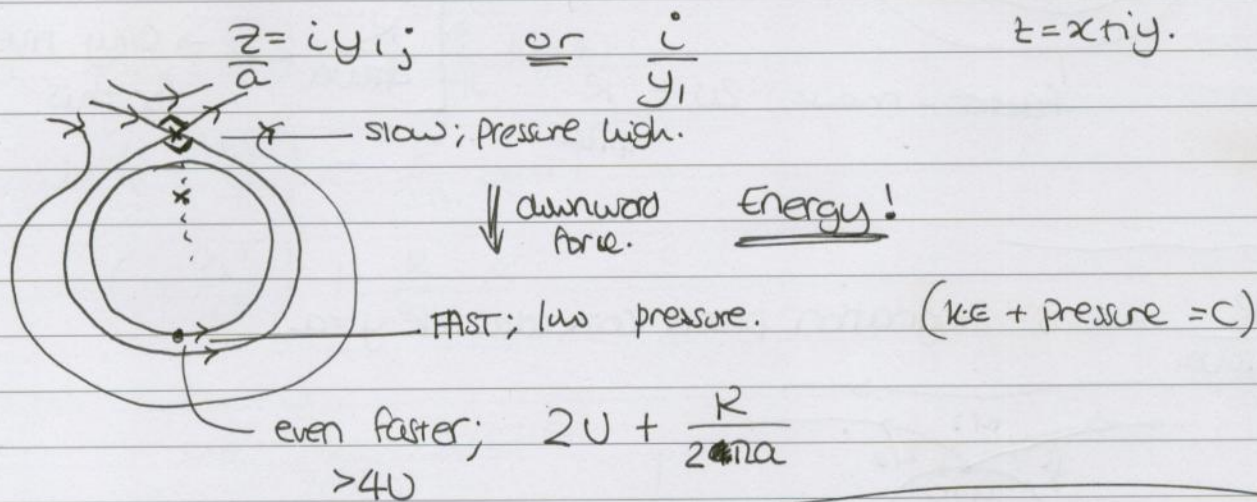 z/a = iy₁; or i/y₁ z = x+iy.
slow; pressure high.
downward Energy!
force.
FAST; low pressure. (KE + Pressure = C)
even faster; 2U + K/2πa
>4U